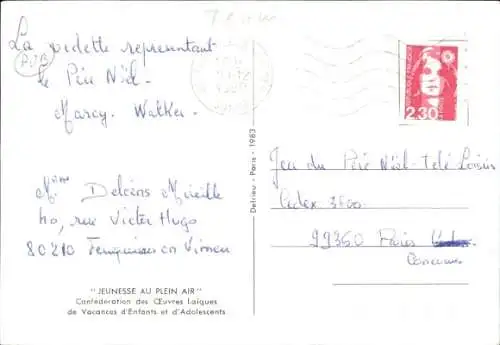 La vedette representant
le Père Noël.
Marcy. Walker.
Mme Delcens Mireille
40, rue Victor Hugo
80210 Feuquières en Vimeu
"JEUNESSE AU PLEIN AIR"
Confédération des Œuvres Laïques
de Vacances d'Enfants et d'Adolescents
Delrieu - Paris - 1983
2,30
Jeu du Père Noël-Télé Loisirs
Cedex 3600
99360 Paris
Concours